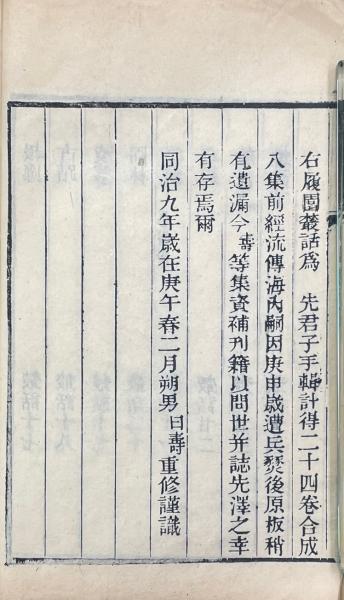 右履園叢話為　先君子手輯計得二十四卷合成
八集前經流傳海內嗣因庚申歲遭兵燹後原板稍
有遺漏今壽等集資補刊藉以問世并誌先澤之幸
有存焉爾
同治九年歲在庚午春二月朔男曰壽重修謹識